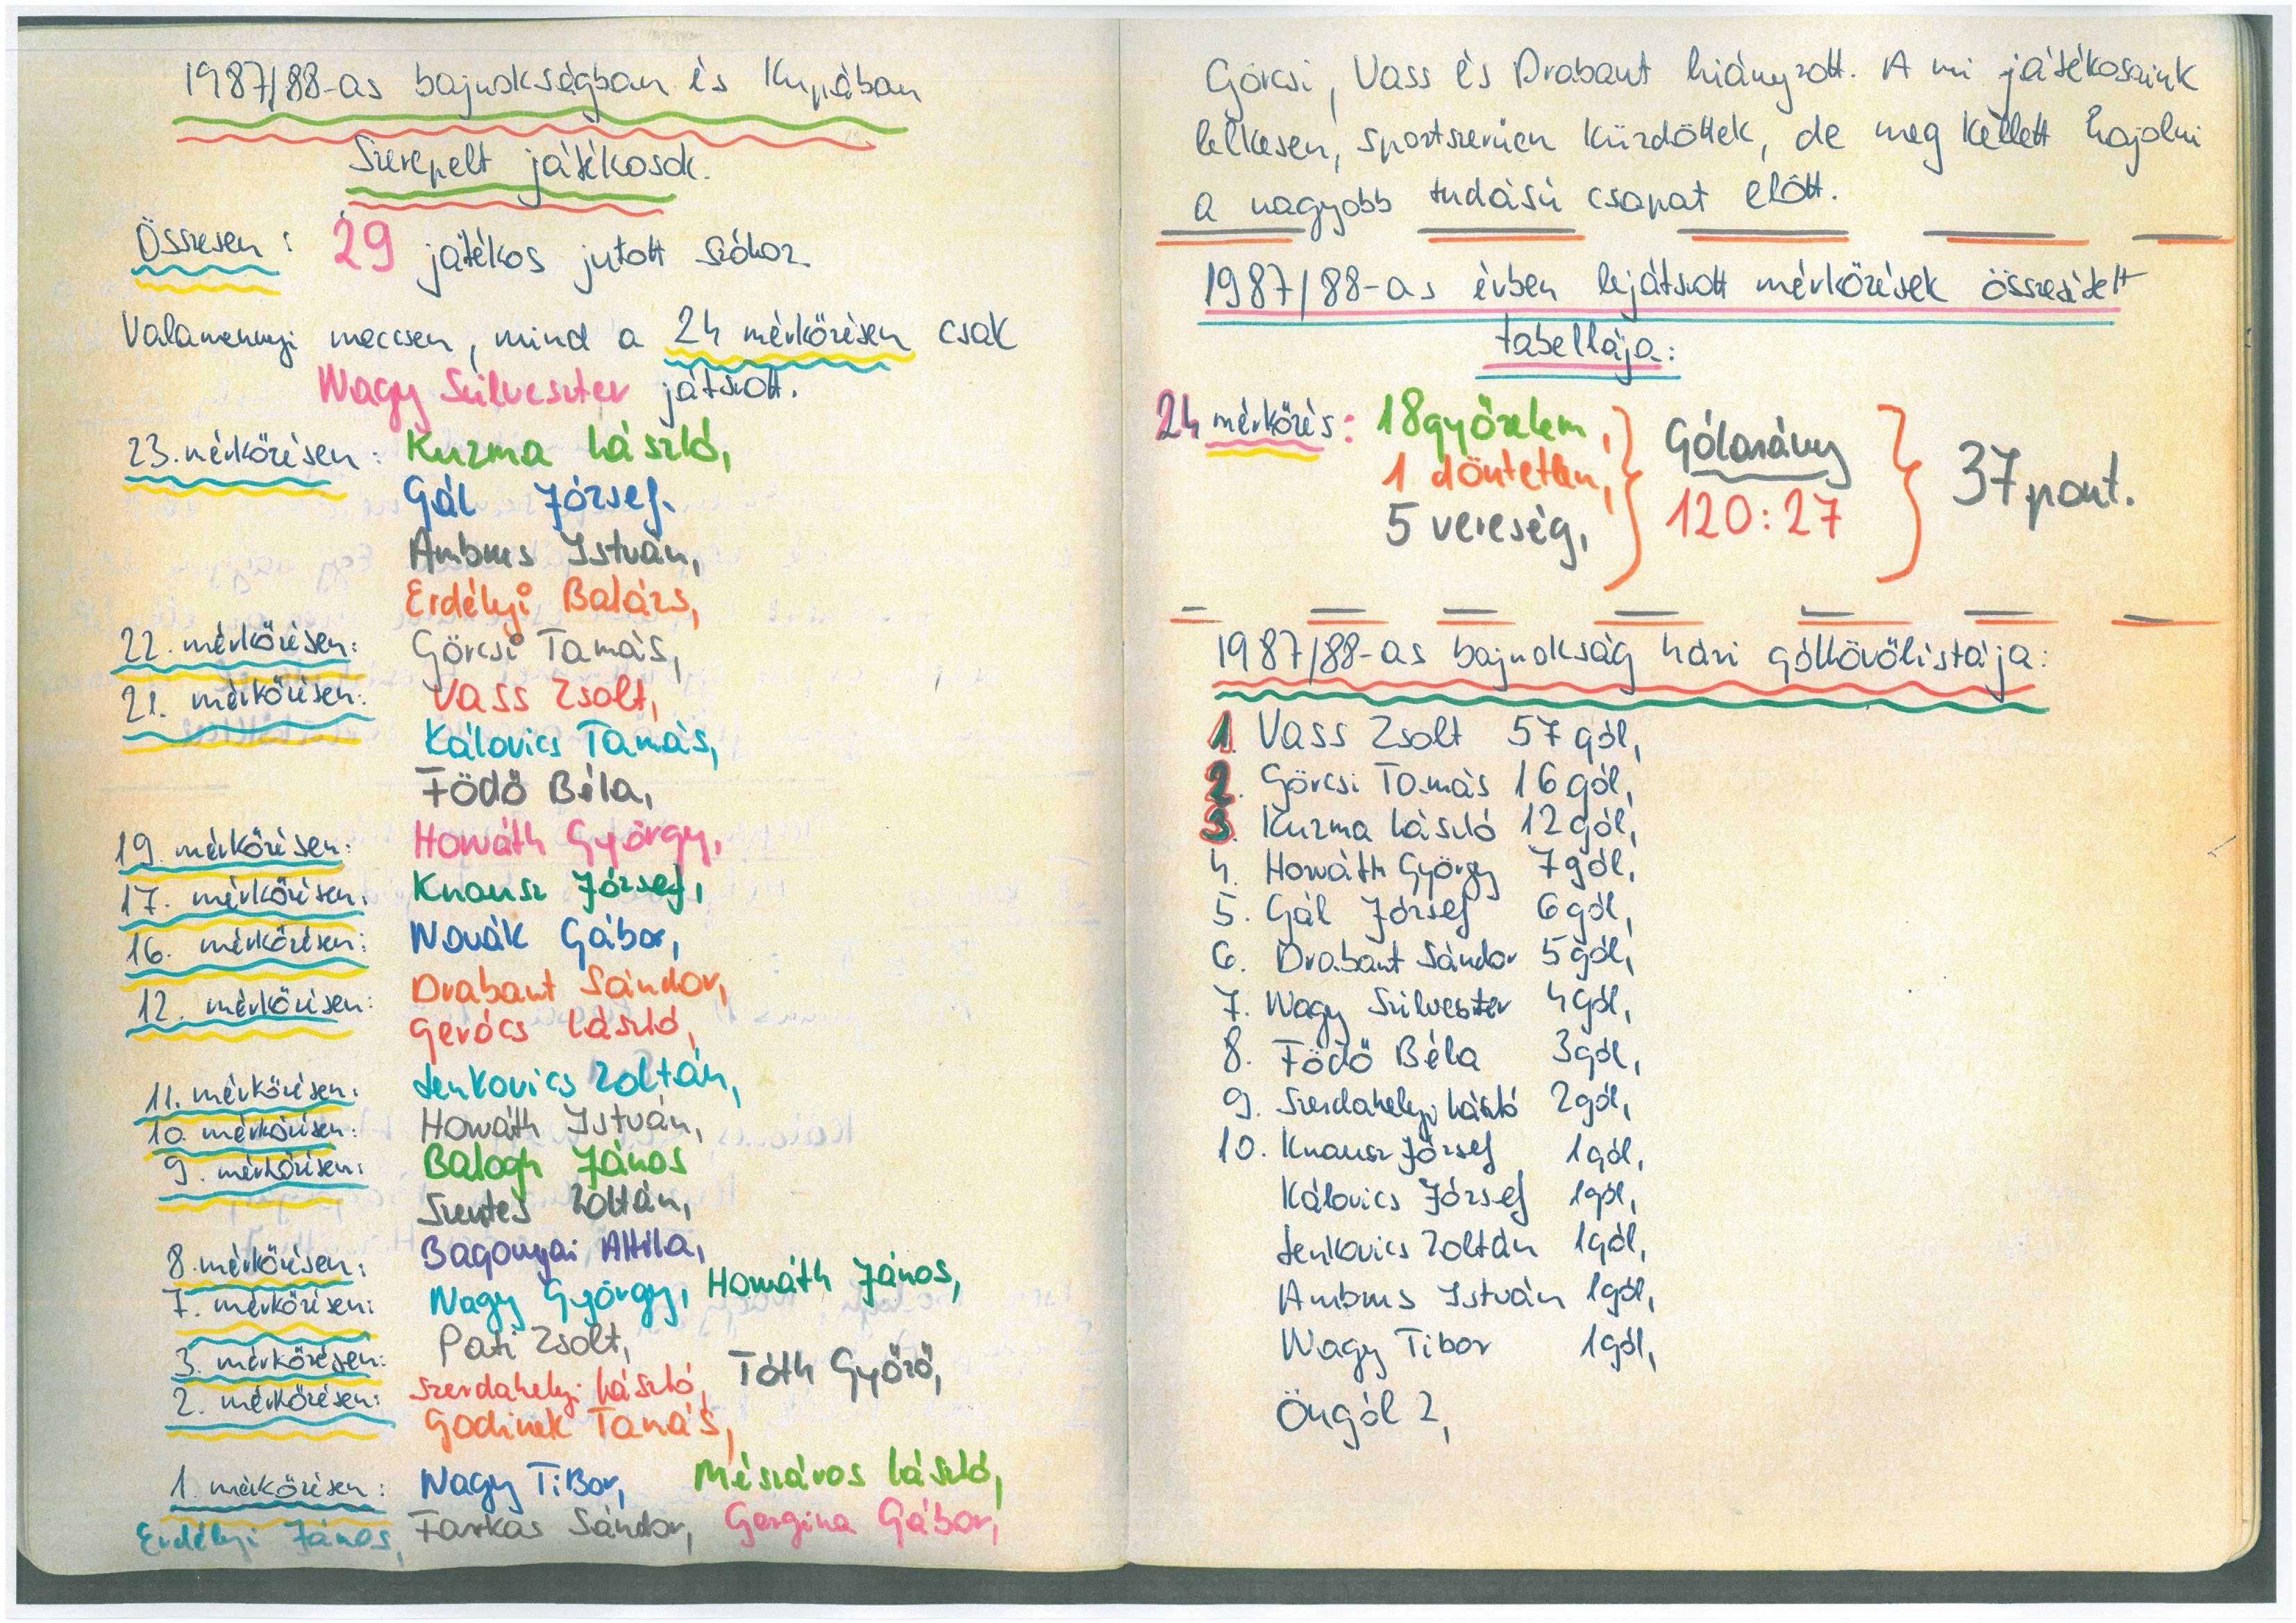 1987/88-as bajnokságban és Kupában
Szerepelt játékosok.
Összesen: 29 játékos jutott szóhoz.
Valamennyi meccsen, mind a 24 mérkőzésen csak
Nagy Szilveszter játszott.
23. mérkőzésen: Kuzma László,
Gál József.
Ambrus István,
Erdélyi Balázs,
22. mérkőzésen: Görcsi Tamás,
21. mérkőzésen: Vass Zsolt,
Kálovics Tamás,
Födő Béla,
19. mérkőzésen: Horváth György,
17. mérkőzésen: Knausz József,
16. mérkőzésen: Novák Gábor,
12. mérkőzésen: Drabant Sándor,
Gerócs László,
11. mérkőzésen: Jenkovics Zoltán,
10. mérkőzésen: Horváth István,
9. mérkőzésen: Balogh János
Szentes Zoltán,
8. mérkőzésen: Bagonyai Attila,
7. mérkőzésen: Nagy György, Horváth János,
3. mérkőzésen: Pati Zsolt,
2. mérkőzésen: Szerdahelyi László, Tóth Győző,
Godinek Tamás,
1. mérkőzésen: Nagy Tibor, Mészáros László,
Erdélyi János, Farkas Sándor, Gergina Gábor,
Görcsi, Vass és Drabant hiányzott. A mi játékosaink
lelkesen, sportszerűen küzdöttek, de meg kellett hajolni
a nagyobb tudású csapat előtt.
1987/88-as évben lejátszott mérkőzések összesített
tabellája:
24 mérkőzés: 18 győzelem, Gólarány 37 pont.
1 döntetlen, 120:27
5 vereség,
1987/88-as bajnokság házi góllövőlistája:
1. Vass Zsolt 57 gól,
2. Görcsi Tamás 16 gól,
3. Kuzma László 12 gól,
4. Horváth György 7 gól,
5. Gál József 6 gól,
6. Drabant Sándor 5 gól,
7. Nagy Szilveszter 4 gól,
8. Födő Béla 3 gól,
9. Szerdahelyi László 2 gól,
10. Knausz József 1 gól,
Kálovics József 1 gól,
Jenkovics Zoltán 1 gól,
Ambrus István 1 gól,
Nagy Tibor 1 gól,
Öngól 2,